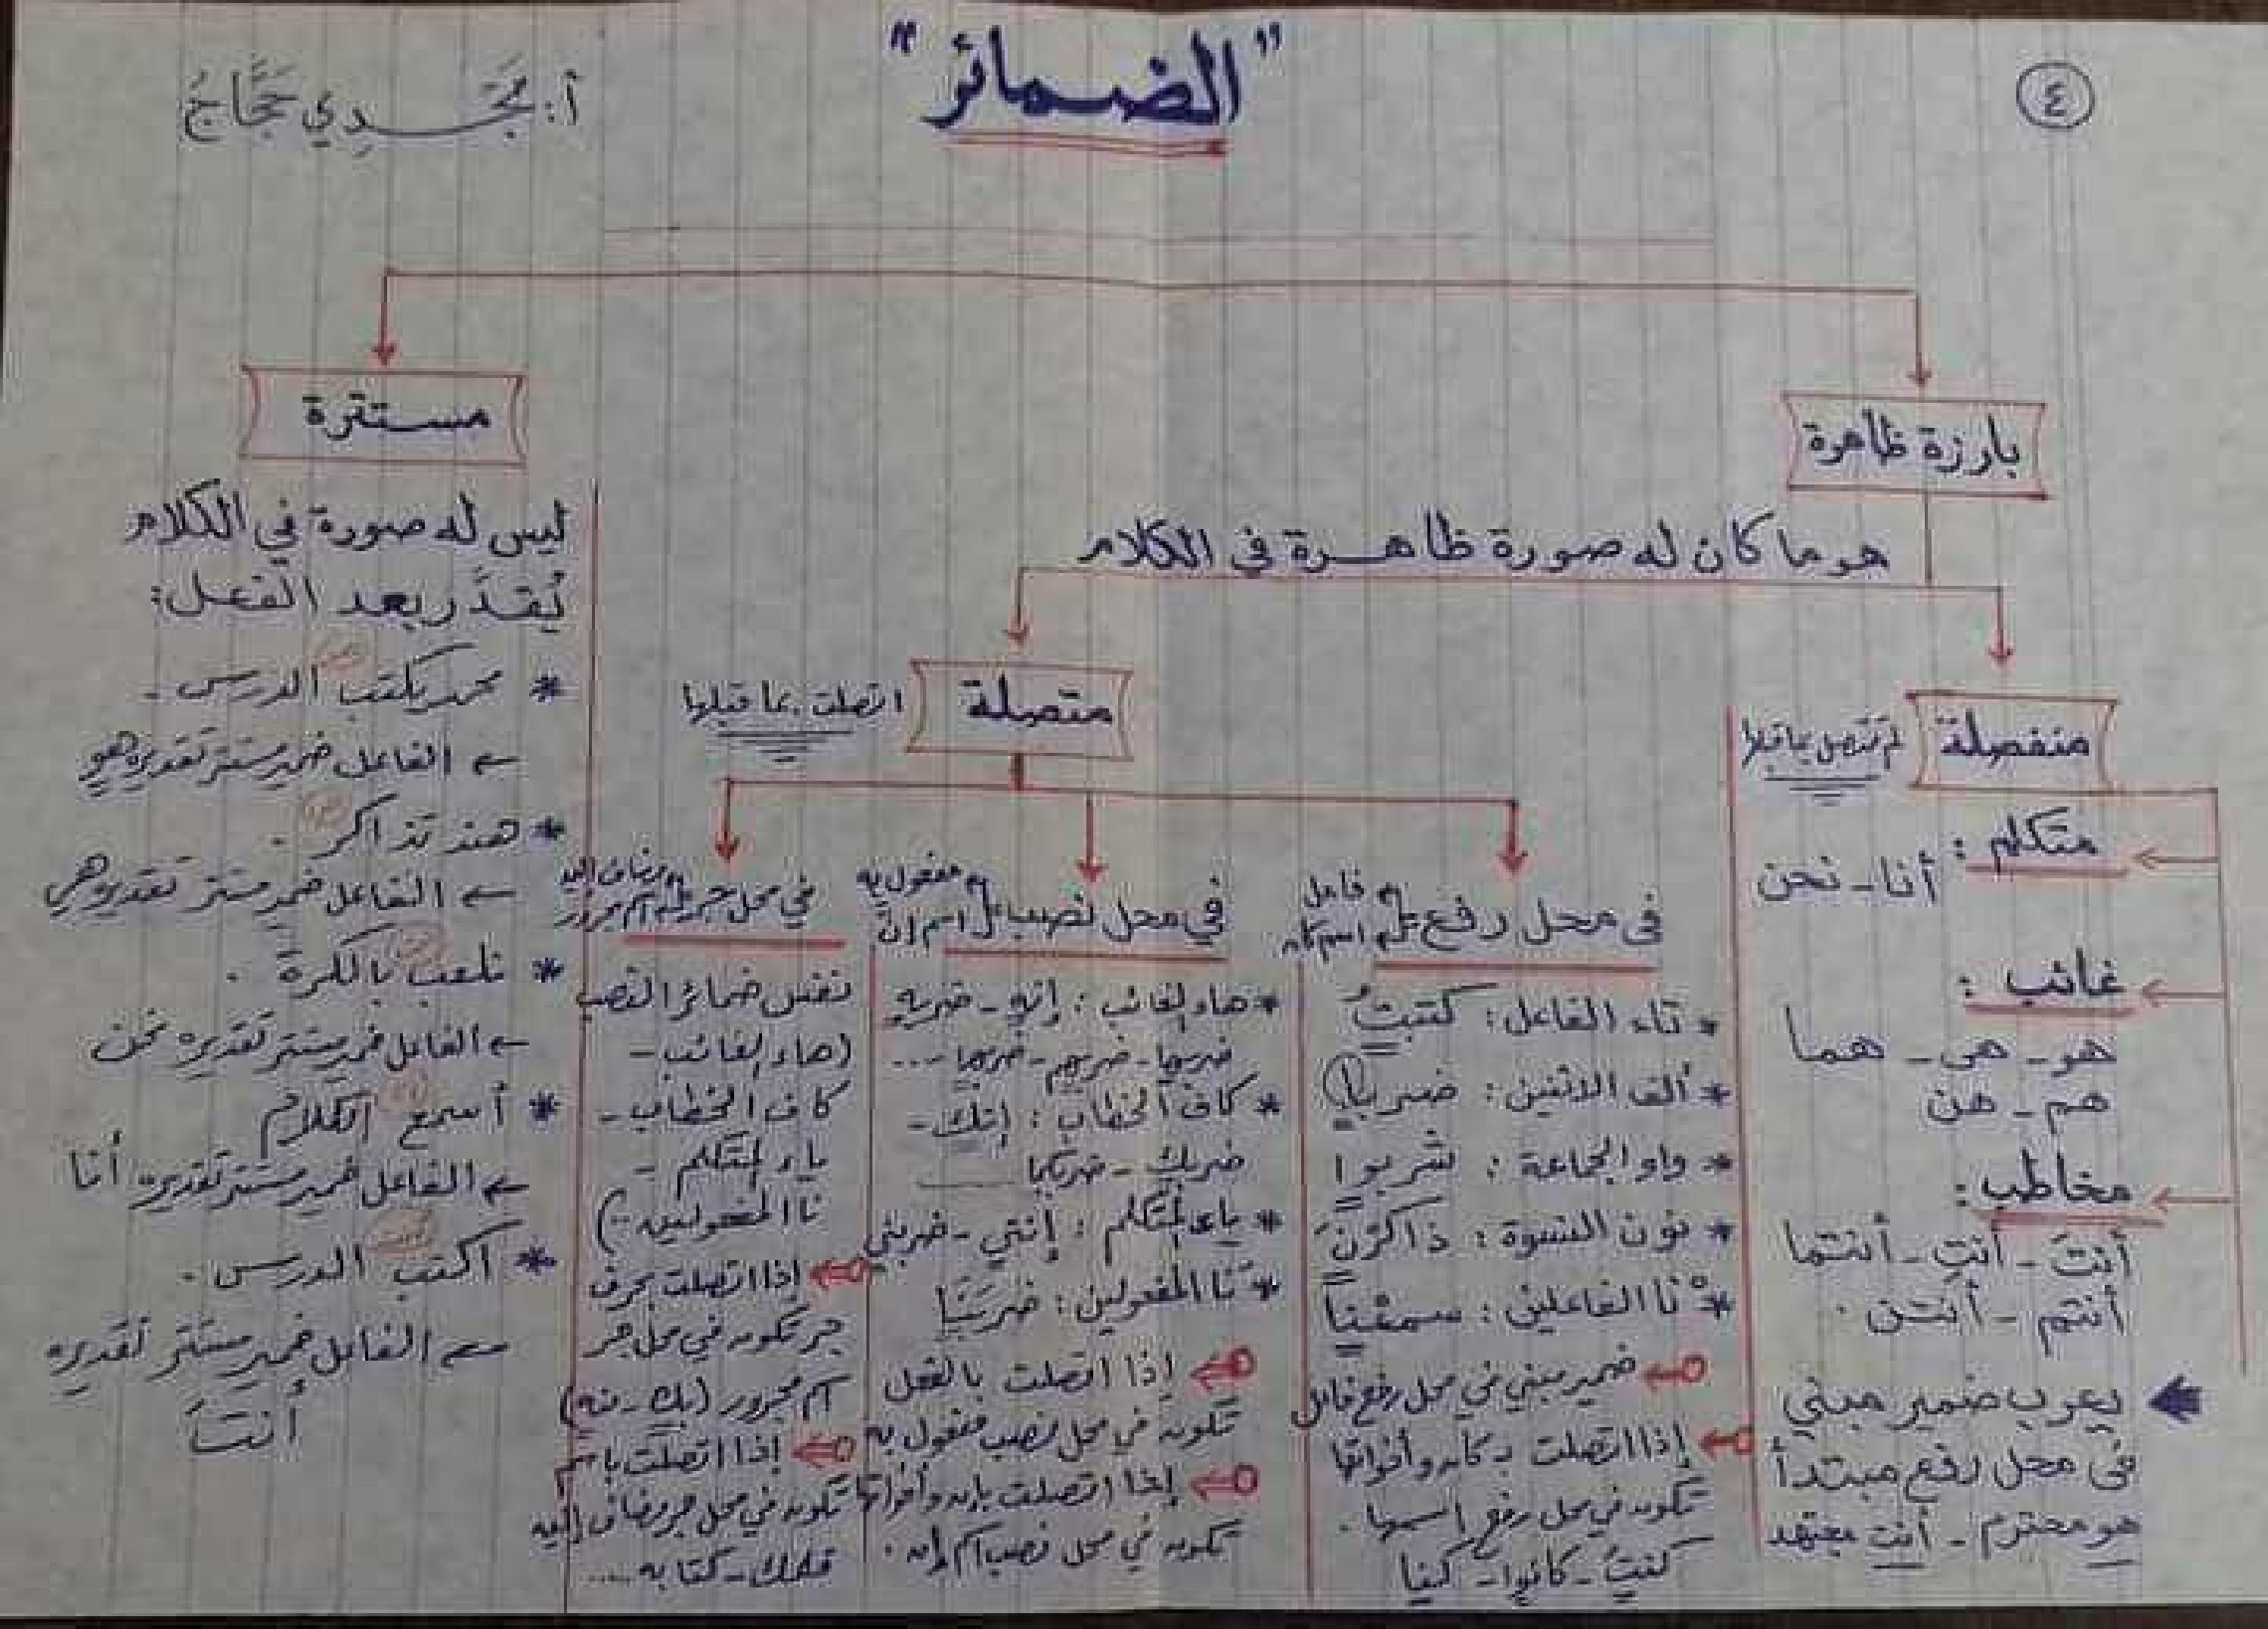 ٤
"الضمائر"
أ: مَجْـدِي حَجَّاجُ
بارزة ظاهرة
هو ما كان له صورة ظاهرة في الكلام
منفصلة
لم تتصل بما قبلها
متكلم :
أنا - نحن
غائب :
هو - هي - هما
هم - هن
مخاطب :
أنتَ - أنتِ - أنتما
أنتم - أنتن .
يعرب ضمير مبني
في محل رفع مبتدأ
هو محترم - أنت مجتهد
متصلة
اتصلت بما قبلها
في محل رفع
فاعل
اسم كان
* تاء الفاعل : كتبتُ
* ألف الاثنين : ضربا
* واو الجماعة : شربوا
* نون النسوة : ذاكرْنَ
* نا الفاعلين : سمعْنا
ضمير مبني في محل رفع فاعل
إذا اتصلت بـ كان وأخواتها
تكون في محل رفع اسمها .
كنتُ - كانوا - كنا
في محل نصب
مفعول به
اسم إنَّ
* هاء الغائب : إنه - ضربه
ضربها - ضربهم - ضربهما ...
* كاف الخطاب : إنك -
ضربك - ضربكما
* ياء المتكلم : إنني - ضربني
* نا المفعولين : ضربَنَا
إذا اتصلت بالفعل
تكون في محل نصب مفعول به
إذا اتصلت بإن وأخواتها
تكون في محل نصب اسم إن .
في محل جر
مضاف إليه
اسم مجرور
نفس ضمائر النصب
(هاء الغائب -
كاف الخطاب -
ياء المتكلم -
نا المفعولين ..)
إذا اتصلت بحرف
جر تكون في محل جر
اسم مجرور (بك - منه)
إذا اتصلت باسم
تكون في محل جر مضاف إليه
قلمك - كتابه ....
مستترة
ليس له صورة في الكلام
يُقدَّر بعد الفعل :
* محمد يكتب الدرس .
← الفاعل ضمير مستتر تقديره هو
* هند تذاكر .
← الفاعل ضمير مستتر تقديره هي
* نلعب بالكرة .
← الفاعل ضمير مستتر تقديره نحن
* أسمع الكلام
← الفاعل ضمير مستتر تقديره أنا
* اكتب الدرس .
← الفاعل ضمير مستتر تقديره
أنتَ